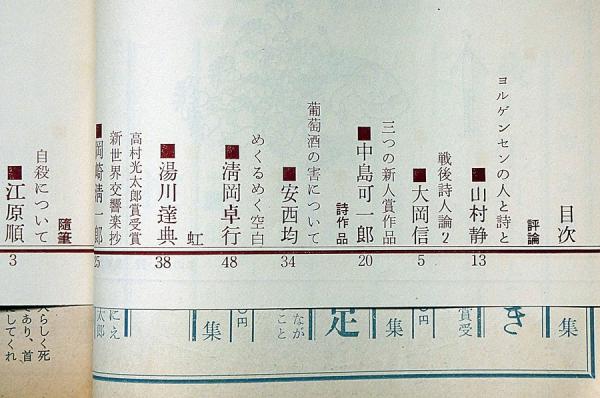 目次
評論
ヨルゲンセンの人と詩と
■山村静
13
戦後詩人論2
■大岡信
5
三つの新人賞作品
■中島可一郎
20
詩作品
葡萄酒の害について
■安西均
34
めくるめく空白
■清岡卓行
48
虹
■湯川達典
38
高村光太郎賞受賞
新世界交響楽抄
■岡崎清一郎
25
随筆
自殺について
■江原順
3
集
き
賞受
円
集
定
なが
こと
円
集
にえ
太郎
らしく死
あり、首
してくれ